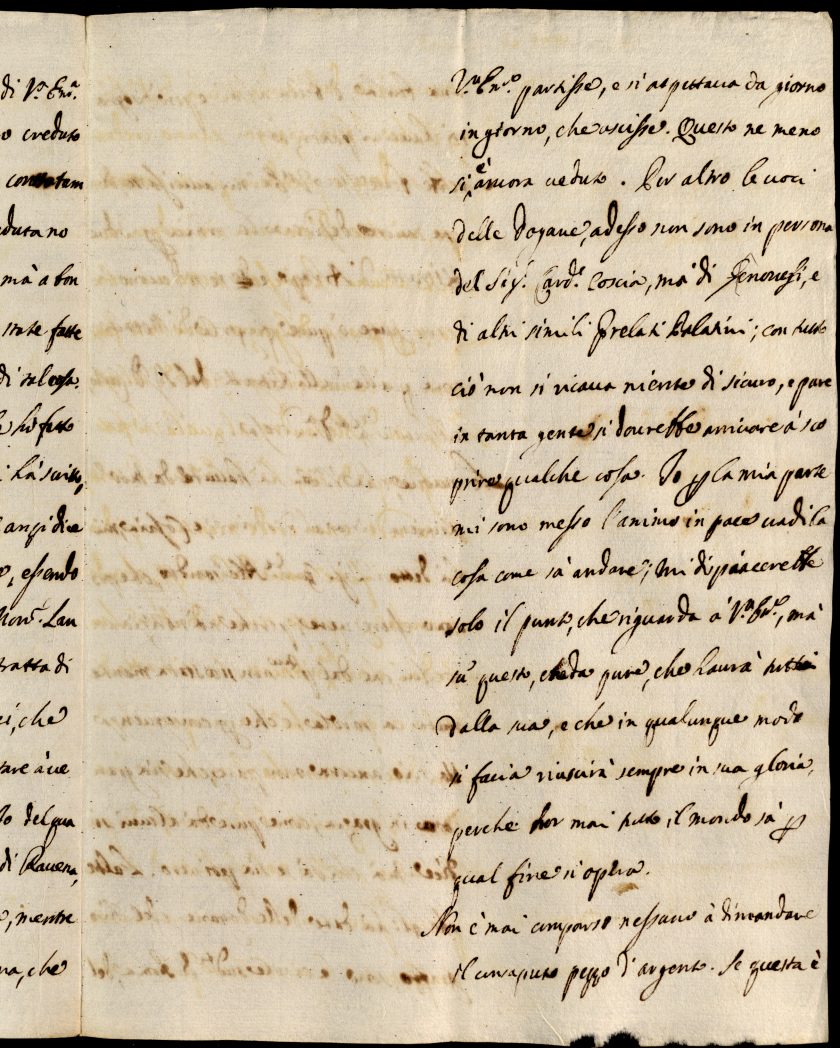 di V.ª Em.ª
o creduto
dutano
mà a bon
state fatte
di tal cosa.
hò fatto
hà scritto,
anzi di e
, essendo
Mons.r Lan
tratta di
ei, che
tare à ve
lo del qua
di Ravena,
, mentre
na, che
V.ª Em.ª partisse, e si aspettava da giorno
in giorno, che uscisse. Questo ne meno
si è ancora veduto. Per altro le voci
delle Dogane, adesso non sono in persona
del Sig.r Card.l Coscia, mà di Genovesi, e
di altri simili Prelati Palatini; con tutto
ciò non si ricava niente di sicuro, e pare
in tanta gente si dovrebbe arrivare à sco
prire qualche cosa. Io p la mia parte
mi sono messo l'animo in pace vadi la
cosa come sà andare; mi dispiacerebbe
solo il punto, che riguarda à V.ª Em.ª, mà
sù questo, creda pure, che haurà tutti
dalla sua, e che in qualunque modo
si facia riuscirà sempre in sua gloria,
perche hor mai tutto il mondo sà p
qual fine si opera.
Non è mai comparso nessuno à dimandare
il consaputo pezzo d'argento. Se questa è